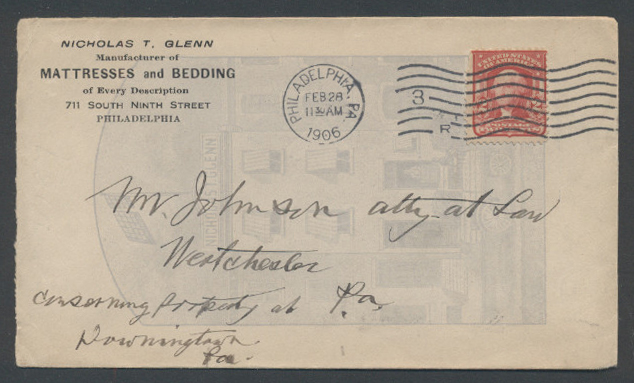 NICHOLAS T. GLENN
Manufacturer of
MATTRESSES and BEDDING
of Every Description
711 SOUTH NINTH STREET
PHILADELPHIA
PHILADELPHIA, PA.
FEB 28
11 30 AM
1906
3
R
Mr. Johnson atty. at Law
Westchester
Pa.
Concerning Property at
Downingtown
Pa.